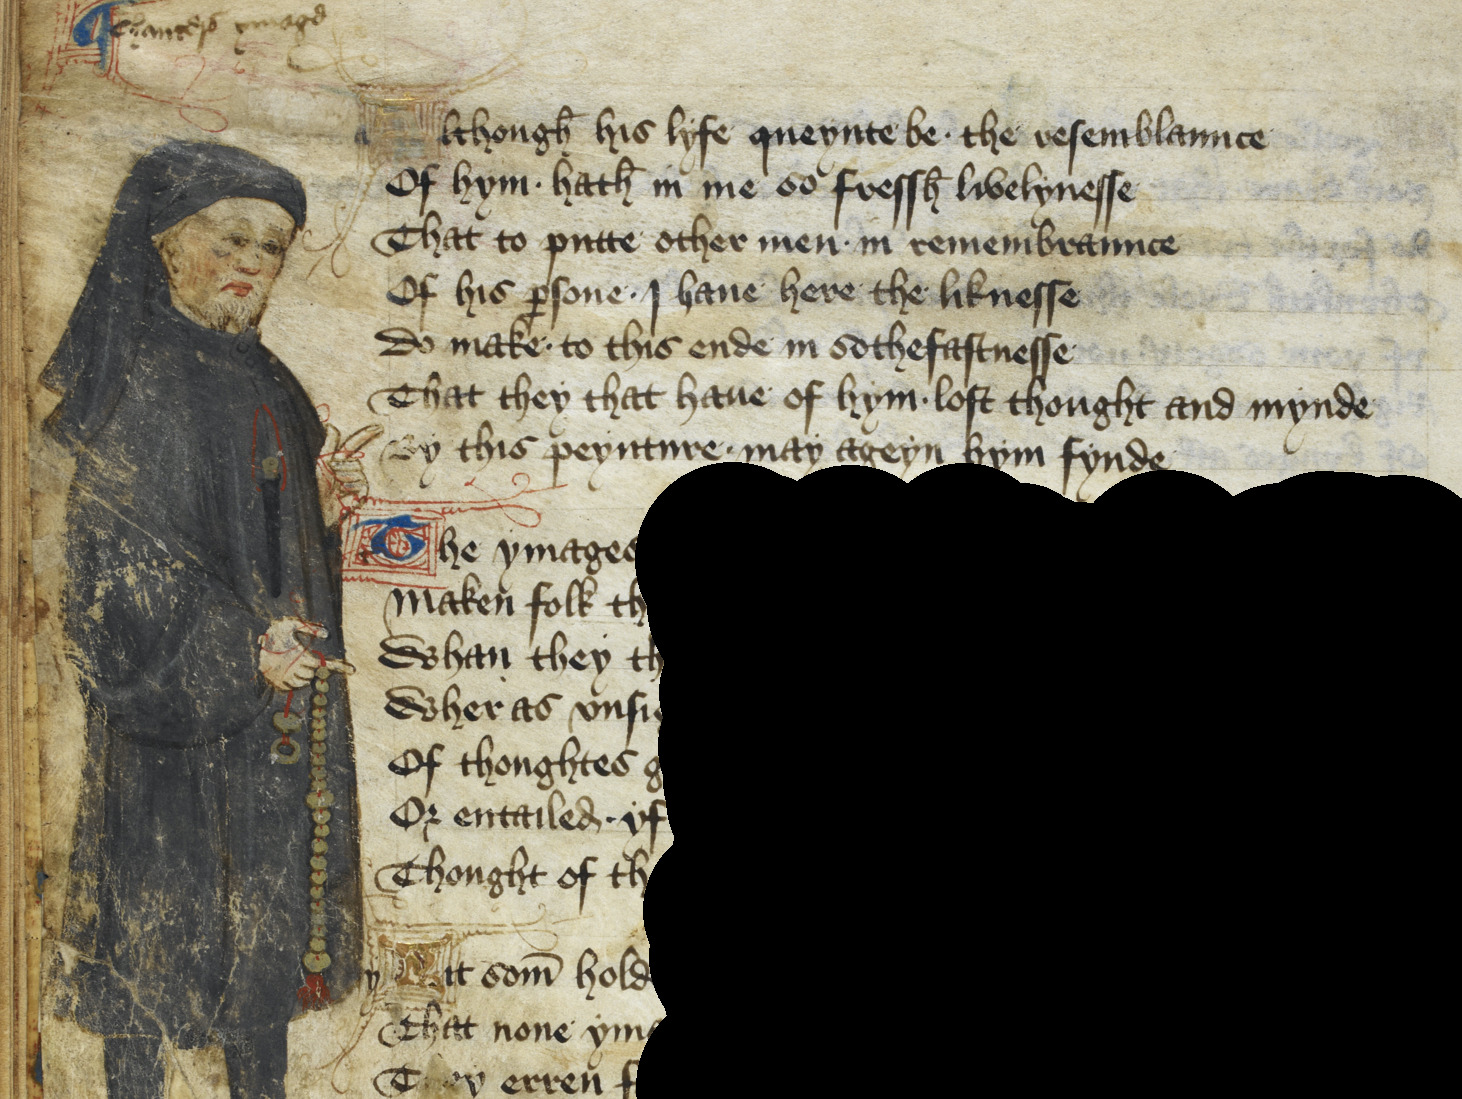 Chaucers ymage
Although his lyfe queynte be · the resemblaunce
Of hym · hath in me so fressh livelynesse
That to putte other men · in remembraunce
Of his psone · I haue here the liknesse
Do make · to this ende in sothefastnesse
That they that haue of hym · lost thought and mynde
By this peynture · may ageyn hym fynde
The ymages
Maken folk
Whan they
Wher as
Of thoughtes
Or entailed · yf
Thought of
But som
That none
They erren